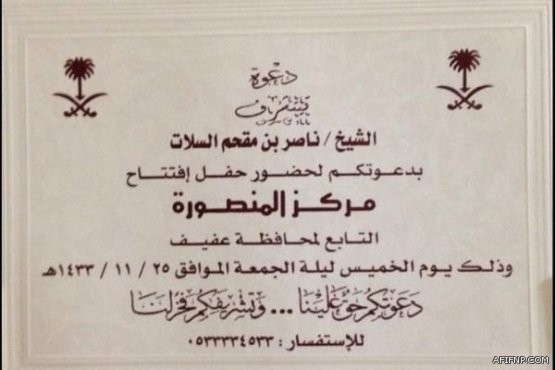 دعوة
يتشرف
الشيخ / ناصر بن مقحم السلات
بدعوتكم لحضور حفل إفتتاح
مركز المنصورة
التابع لمحافظة عفيف
وذلك يوم الخميس ليلة الجمعة الموافق ٢٥ / ١١ / ١٤٣٣هـ
دعوتكم حق علينا ... وتشريفكم فخر لنا
للإستفسار : ٠٥٣٣٣٣٤٥٣٣
AFIFNP.COM